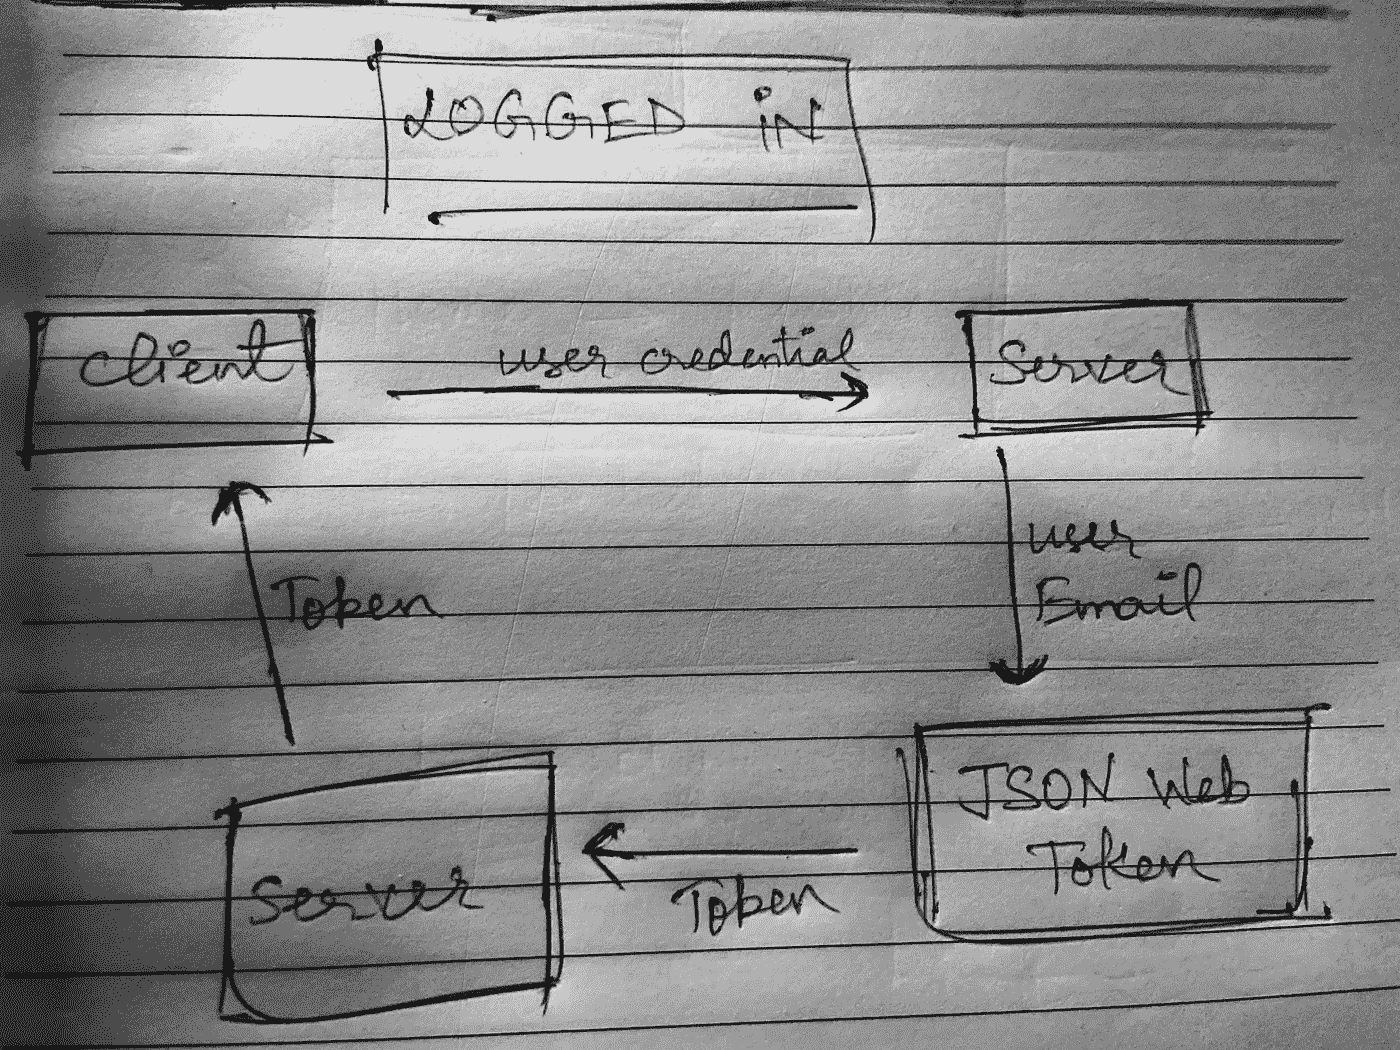 LOGGED iN
Client
user credential
Server
user
Email
Token
JSON Web
Token
Server
Token